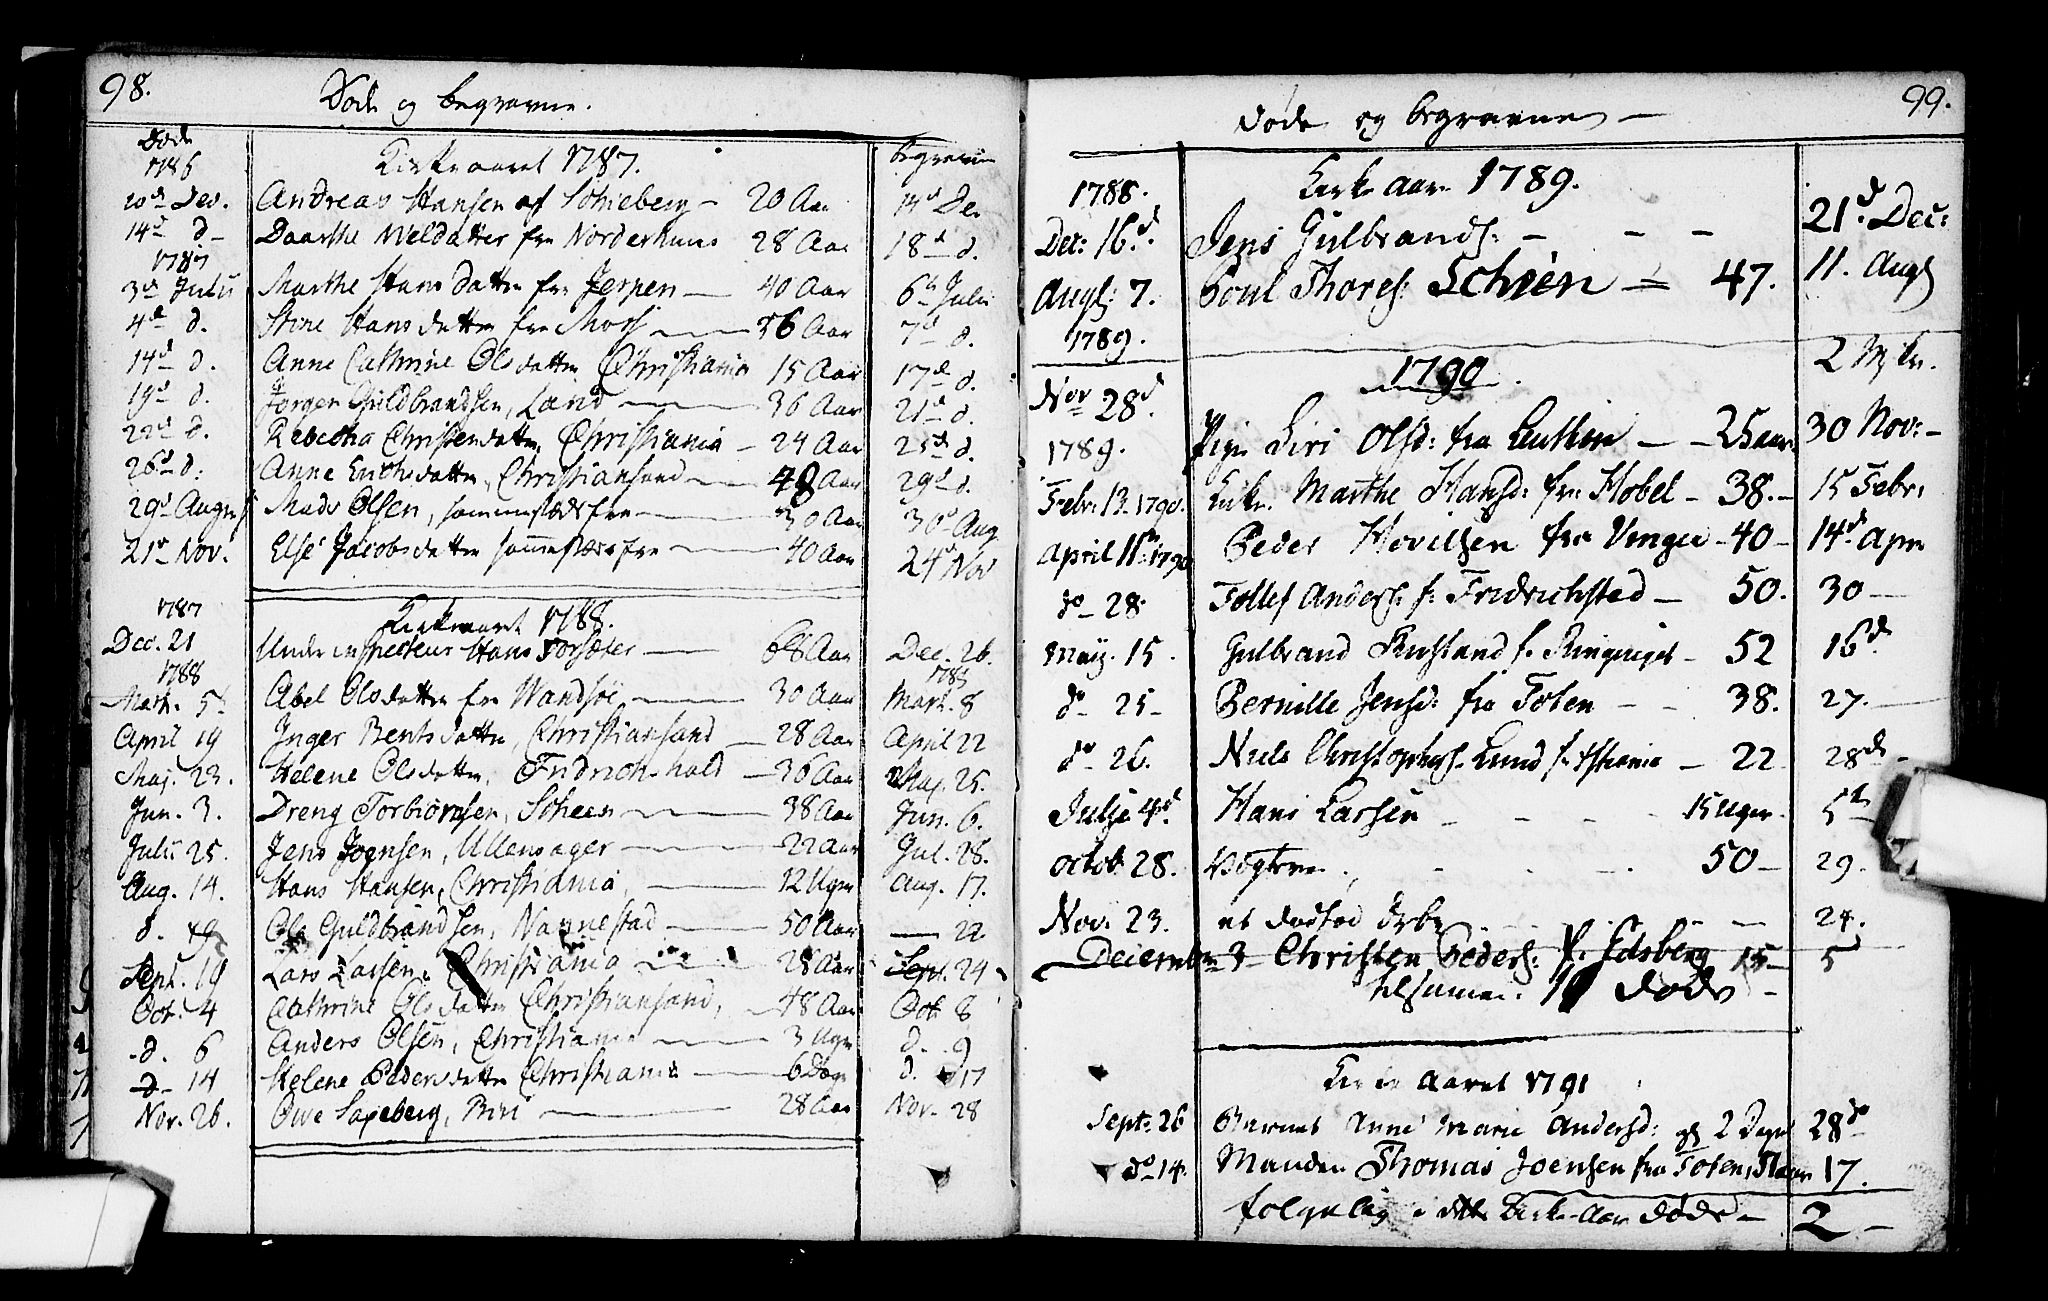 98.
Døde og begravne.
Døde
1786
Kirkeaaret 1787.
begraven
10de Dec. Andreas Hansen af Schieberg - 20 Aar 14d Dec
14d d. Daarthe Nielsdatter fra Norderhuus 28 Aar 18d d.
1787
3de Julii Marthe Hans datter fra Jerpen 40 Aar 6te Julii
4d d. Stine Hans datter fra Moss 26 Aar 7d d.
14d d. Anne Cathrine Olsdatter Christiania 15 Aar 17d d.
19d d. Jørgen Guldbrandsen, Land 36 Aar 21d d.
22d d. Rebecka Christensdatter, Christiania - 24 Aar 25d d.
26d d. Anne Erichsdatter, Christiansand 48 Aar 29d d.
29d August Mads Olsen, sammestedsfra 30 Aar 30d Aug
21d Nov. Else Jacobsdatter sammestædsfra 40 Aar 24d Nov
1787
Kirkeaaret 1788.
Dec. 21 Under inspecteur Hans Forsæter 68 Aar Dec. 26.
1788 1788
Mart. 5 Abel Olsdatter fra Wandsøe 30 Aar Mart. 8
April 19 Inger Bentsdatter, Christiansand 28 Aar April 22
Maj. 23. Helene Olsdatter, Fridrichshald 36 Aar Maj. 25.
Jun. 3. Dreng Torbiørnsen, Scheen 38 Aar Jun. 6.
Julii 25. Jens Joensen, Ullensager 22 Aar Jul. 28.
Aug. 14. Hans Hansen, Christiania, 12 Uger Aug. 17.
d. 19 Ole Guldbrandsen, Nannestad 50 Aar 22
Sept. 19 Lars Larsen, Christiania 28 Aar Sept. 24
Oct. 4 Cathrine Olsdatter Christiansand, 48 Aar Oct 8
d. 6 Anders Olsen, Christiania 3 Uger d. 9
d 14 Helene Pedersdatter Christiania 6 Dage d. 17
Nov. 26. Owe Saxeberg, Biri 28 Aar Nov. 28
99.
Døde og begravne
1788. Kirke aar 1789.
Dec: 16d. Jens Gulbrands: - - - 21d. Dec:
Augs: 7. Poul Thores: Schien 47. 11. Augs
1789.
1790.
Nov 28d. Pige Siri Olsd: fra 25 aar. 30 Nov:
1789.
Febr: 13. 1790. Marthe Hansd: fra Hobel - 38. 15 Febr:
April 11te 1790 Peder Hovelsen fra Vinger - 40 - 14d Apr
do 28. Tollef Anders: f: Fridrichsted 50. 30
Maij. 15. Gulbrand f. Ringriget 52 16d
do 25 Pernille Jensd: fra Toten - - 38. 27.
do 26. Niels Christophers: Lund f. Xstiania 22 28de
Julje 4d. Hans Larsen - - - 15 Uger. 5te
octob. 28. 50 29.
Nov. 23. et dødfød 24.
Deicember 3 Christen Peders: f. Edsberg 15 5
tilsamen. døde
Kirke Aaret 1791
Sept: 26 Barnet Anne Marie Andersd: 2 Dage 28de
do 14. Manden Thomas Joensen fra Toten, 17.
følgelig i dette Kirke-Aar døde 2